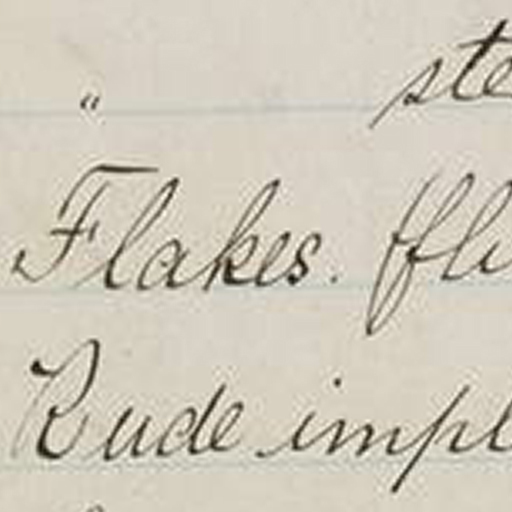 " ste
Flakes. fli
Rude impl